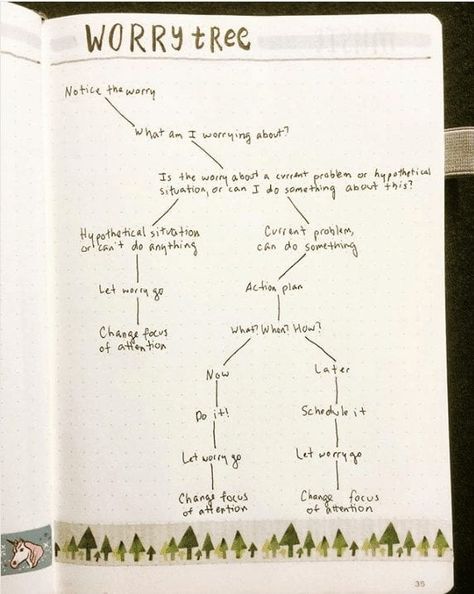 WORRY tREE
Notice the worry
What am I worrying about?
Is the worry about a current problem or hypothetical
situation, or can I do something about this?
Hypothetical situation
or can't do anything
Let worry go
Change focus
of attention
Current problem,
can do something
Action plan
What? When? How?
Now
Do it!
Let worry go
Change focus
of attention
Later
Schedule it
Let worry go
Change focus
of attention
35